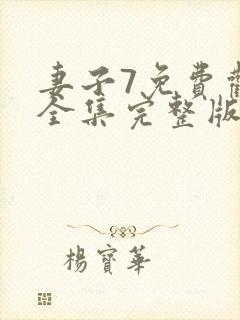 妻子7免費觀
全集完整版
楊寶華